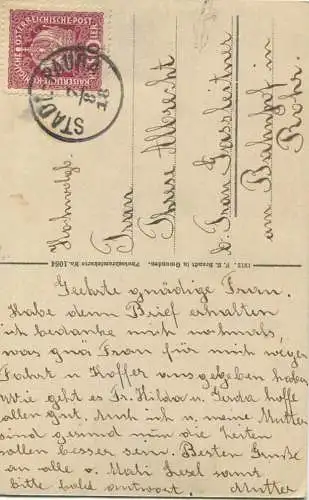 KAISERLICHE KÖNIGLICHE ÖSTERREICHISCHE POST
STADL-PAURA
8
18
Hochwolgb.
Frau
Therese Albrecht
b. Frau Gassleitner
am Bahnhof in
Rohr.
1912. P. F. E. Brandt in Gmunden.
Photochromiekarte No. 1064
Geehrte gnädige Frau.
Habe denn Brief erhalten
ich bedanke mich nohmals,
was gnä Frau für mich wegen
Fahrt u Koffer ausgegeben haben
Wie geht es Fr. Hilda u Gerda hoffe
allen gut. Auch ich u. meine Mutter
sind gesund nun die Zeiten
sollen besser sein. Besten Grüße
an alle a. Mali Gesel samt
bitte bald antwort. Mutter